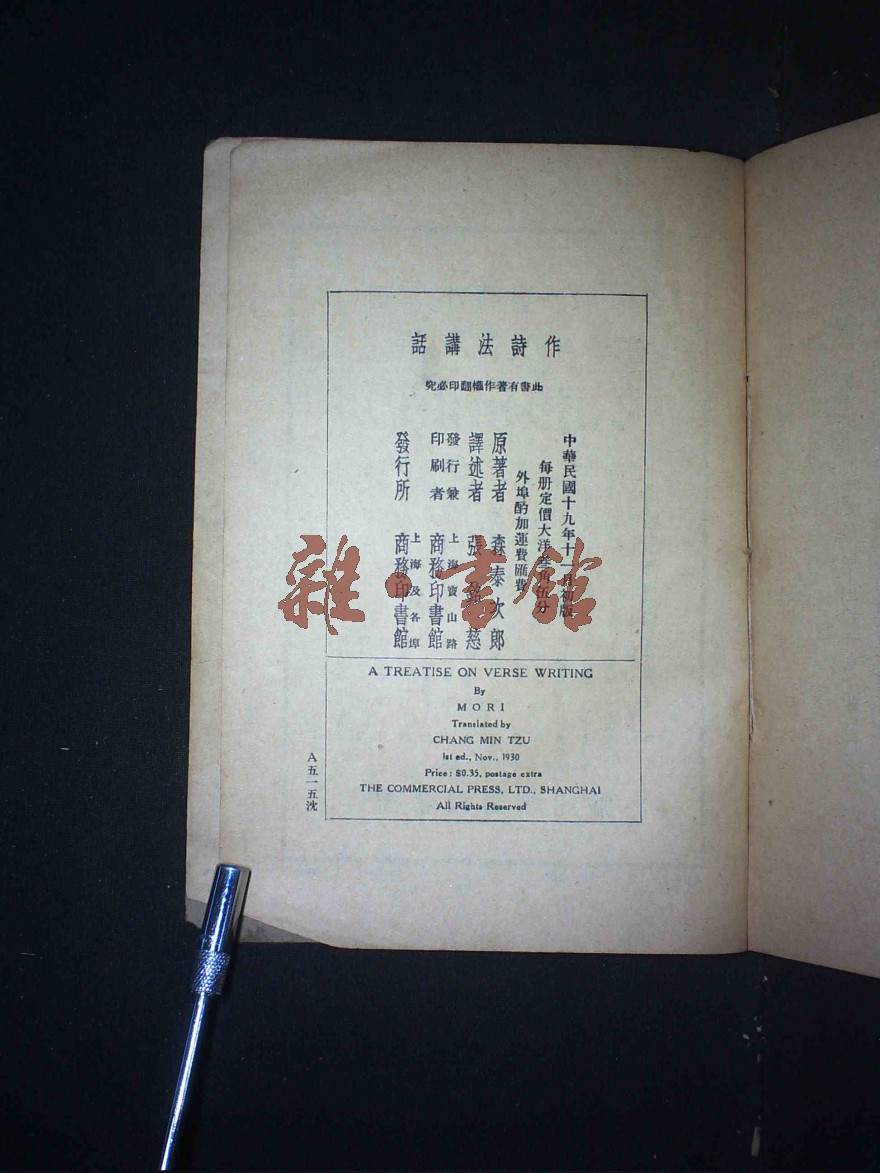 作詩法講話
此書有著作權翻印必究
中華民國十九年十一月初版
每册定價大洋叁角伍分
外埠酌加運費匯費
原著者 森泰次郎
譯述者 張 慈
發行兼印刷者 上海寶山路 商務印書館
發行所 上海及各埠 商務印書館
A TREATISE ON VERSE WRITING
By
MORI
Translated by
CHANG MIN TZU
1st ed., Nov., 1930
Price: $0.35, postage extra
THE COMMERCIAL PRESS, LTD., SHANGHAI
All Rights Reserved
A五一五沈
雜·書館